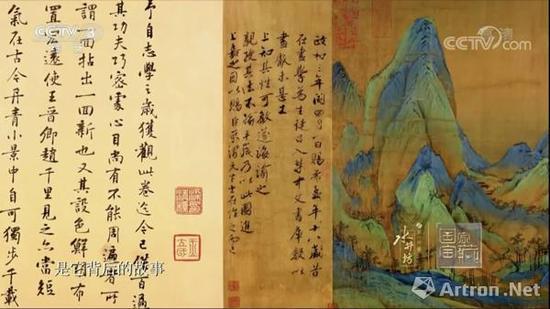 予自志學之歲獲觀此卷迄今已僅百過
其功夫巧密處心目尚有不能周遍者所
謂一回拈出一回新也又其設色鮮明布
置宏遠使王晉卿趙千里見之亦當短
氣在古今丹青小景中自可獨步千載
政和三年閏四月一日賜希孟年十八歲昔
在畫學為生徒召入禁中文書庫數以
畫獻未甚工
上知其性可教遂誨諭之
親授其法不踰半歲乃以此圖進
上嘉之因以賜臣京謂天下士在作之而已
是它背后的故事
CCTV
水井坊
国家宝藏
Artron.Net